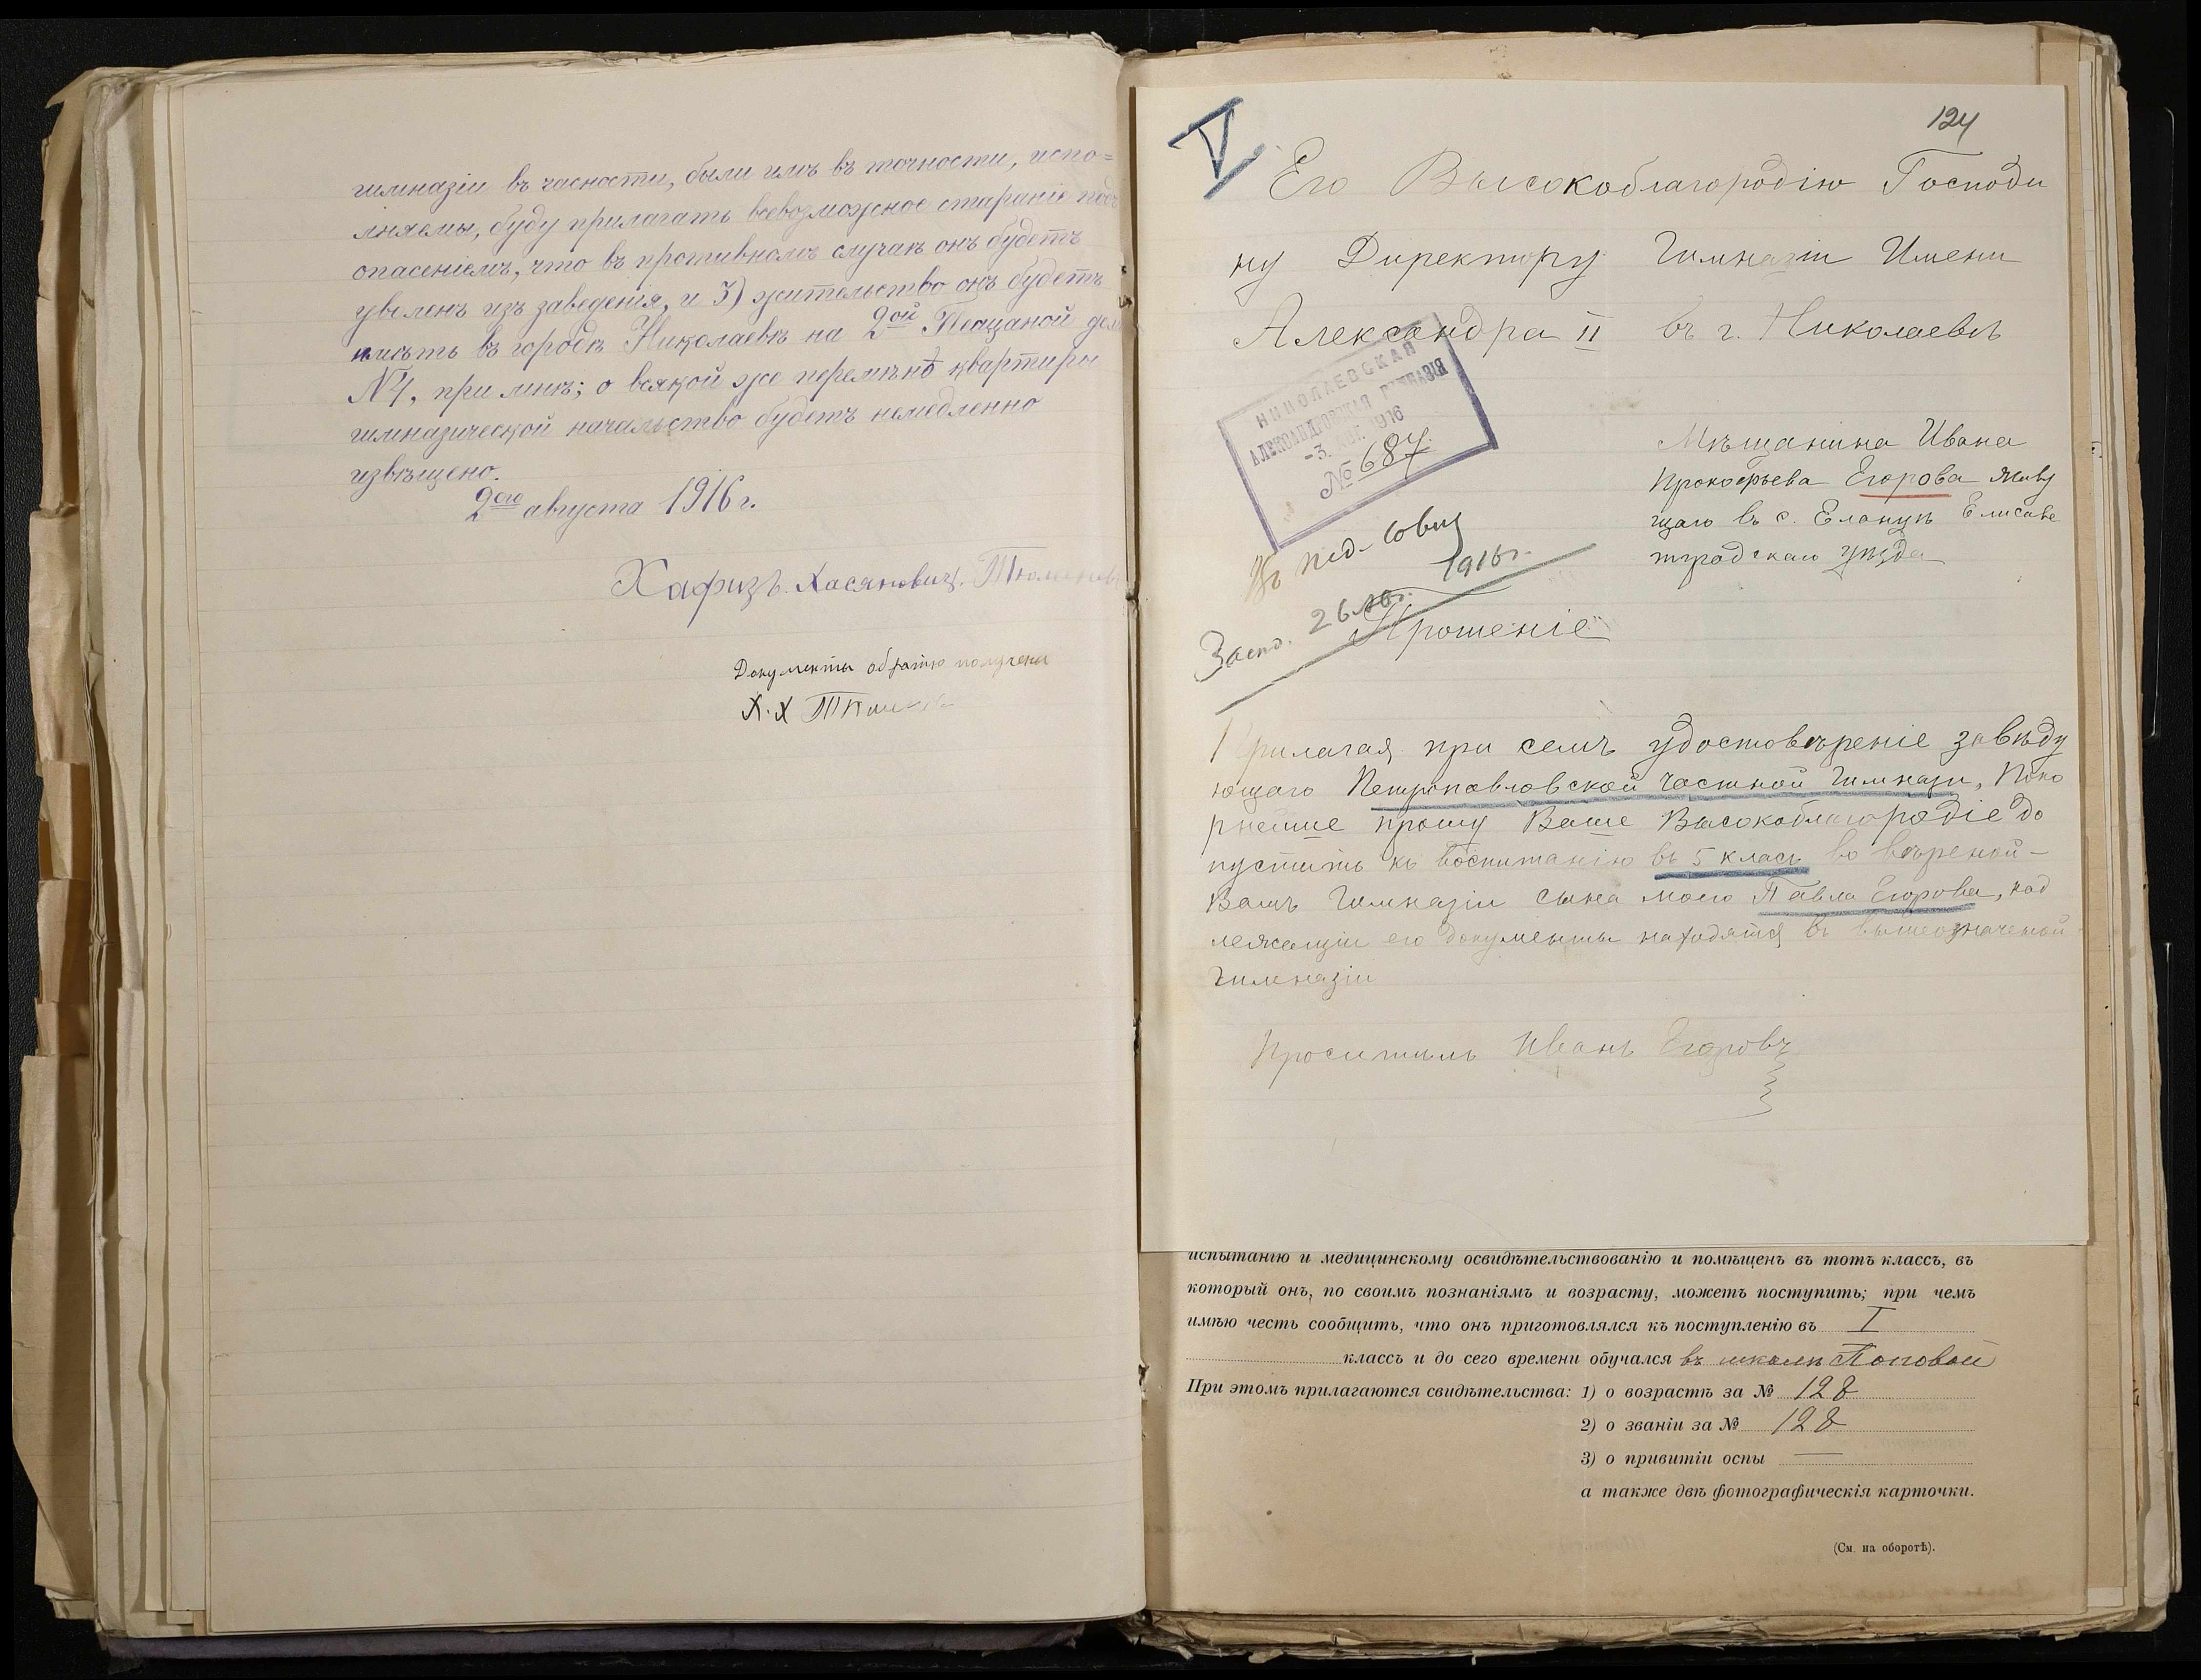 гимназіи въ часности, были имъ въ точности, испо=
лняемы, буду прилагать всевозможное стараніе подъ
опасеніемъ, что въ противномъ случаѣ онъ будетъ
уволенъ изъ заведенія, и 3) жительство онъ будетъ
имѣть въ городѣ Николаевѣ на 2ой Песчаной
при мнѣ; о всякой же перемѣнѣ квартиры
гимназической начальство будетъ немедленно
извѣщено.
2ого августа 1916 г.
Хафизъ. Хасяновичъ.
Документы обратно получены
Х. Х
124
V
Его Высокоблагородію Господи
ну Директору Гимназіи Имени
Александра II въ г. Николаевѣ
НИКОЛАЕВСКАЯ
АЛЕКСАНДРОВСКАЯ ГИМНАЗІЯ
-3. АВГ. 1916
№ 687
Мѣщанина Ивана
Прокофьева Егорова живу
щаго въ с. Еланцѣ Елисаве
тградскаго уѣзда
Въ пед. совѣ
Засѣд. 26 авг. 1916 г.
Прошеніе
Прилагая при семъ удостовѣреніе завѣду
ющаго Петропавловской Частной Гимнази, Поко
рнейше прошу Ваше Высокоблагородіе до
пустить къ воспитанію въ 5 класъ во ввѣреной
Вамъ Гимназіи сына моего Павла Егорова, над
лежащіи его документы находятся въ вышеозначеной
Гимназіи
Проситель Иванъ Егоровъ
испытанію и медицинскому освидѣтельствованію и помѣщенъ въ тотъ классъ, въ
который онъ, по своимъ познаніямъ и возрасту, можетъ поступить; при чемъ
имѣю честь сообщить, что онъ приготовлялся къ поступленію въ I
классъ и до сего времени обучался въ школѣ Поповой
При этомъ прилагаются свидѣтельства: 1) о возрастѣ за № 128
2) о званіи за № 128
3) о привитіи оспы —
а также двѣ фотографическія карточки.
(См. на оборотѣ).